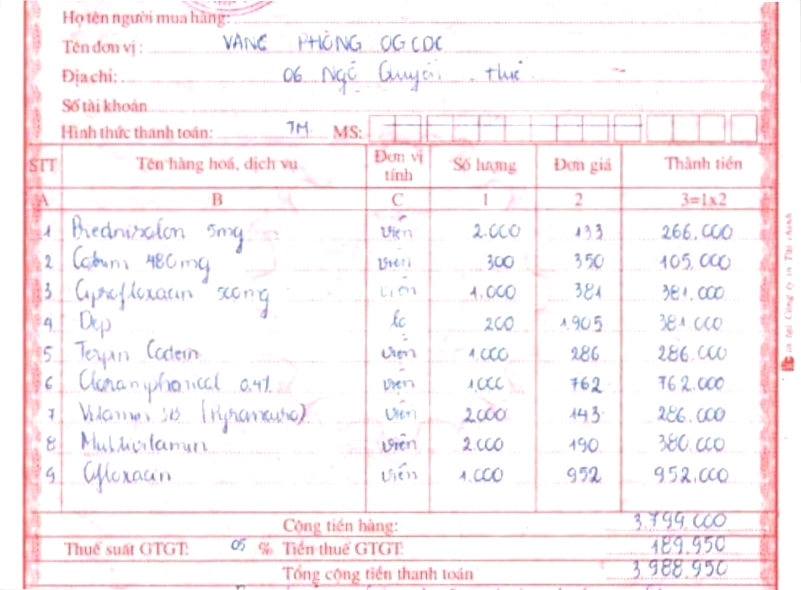 Họ tên người mua hàng:
Tên đơn vị: VĂNG PHÒNG OGCDC
Địa chỉ: 06 Ngô Quyền
Số tài khoản
Hình thức thanh toán: TM MS:
STT Tên hàng hoá, dịch vụ Đơn vị tính Số lượng Đơn giá Thành tiền
A B C 1 2 3=1x2
1 Prednisolon 5mg viên 2.000 133 266.000
2 Cotrim 480mg viên 300 350 105.000
3 Ciprofloxacin 500mg viên 1.000 381 381.000
4 Dep lọ 200 1.905 381.000
5 Terpin Codein viên 1.000 286 286.000
6 Cloramphenical 0.4% 1000 762 762.000
7 Vitamin viên 2000 143 286.000
8 Multivitamin viên 2.000 190 380.000
9 Ofloxacin viên 1.000 952 952.000
Cộng tiền hàng: 3.799.000
Thuế suất GTGT: 05 % Tiền thuế GTGT: 189.950
Tổng cộng tiền thanh toán 3.988.950
in tại Công ty in Tài chính